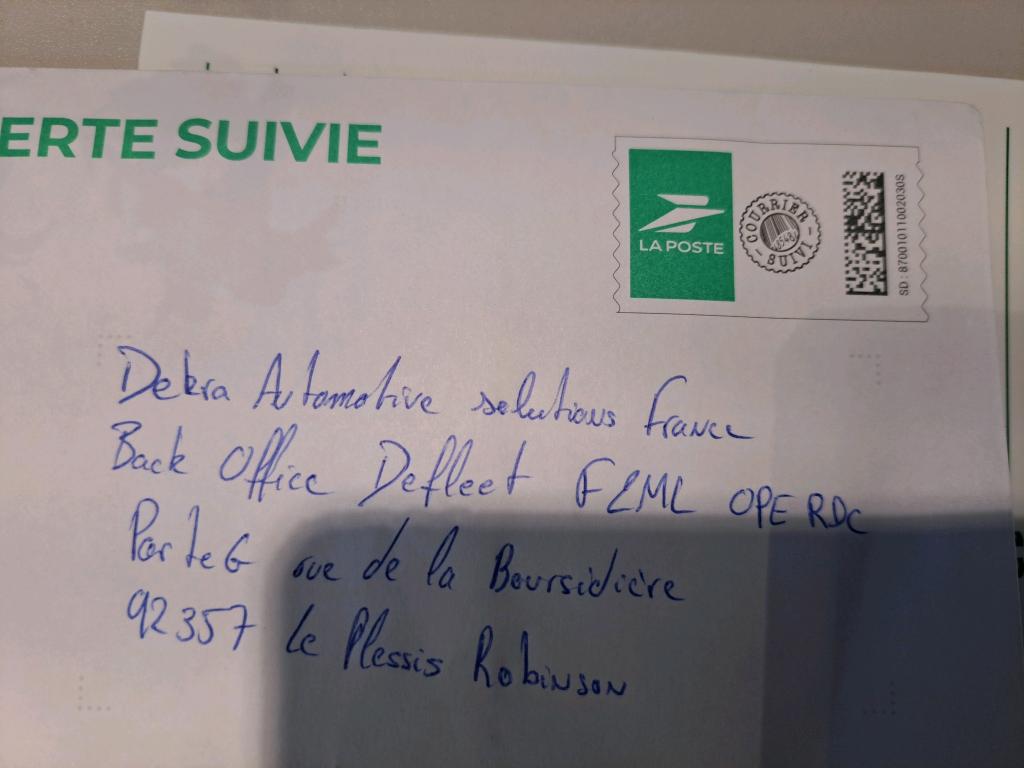 ERTE SUIVIE
LA POSTE
COURRIER
SUIVI
SD : 87001011002030S
Dekra Automotive solutions France
Back Office Defleet F2ML OPE RDC
Porte G rue de la Boursidière
92357 Le Plessis Robinson